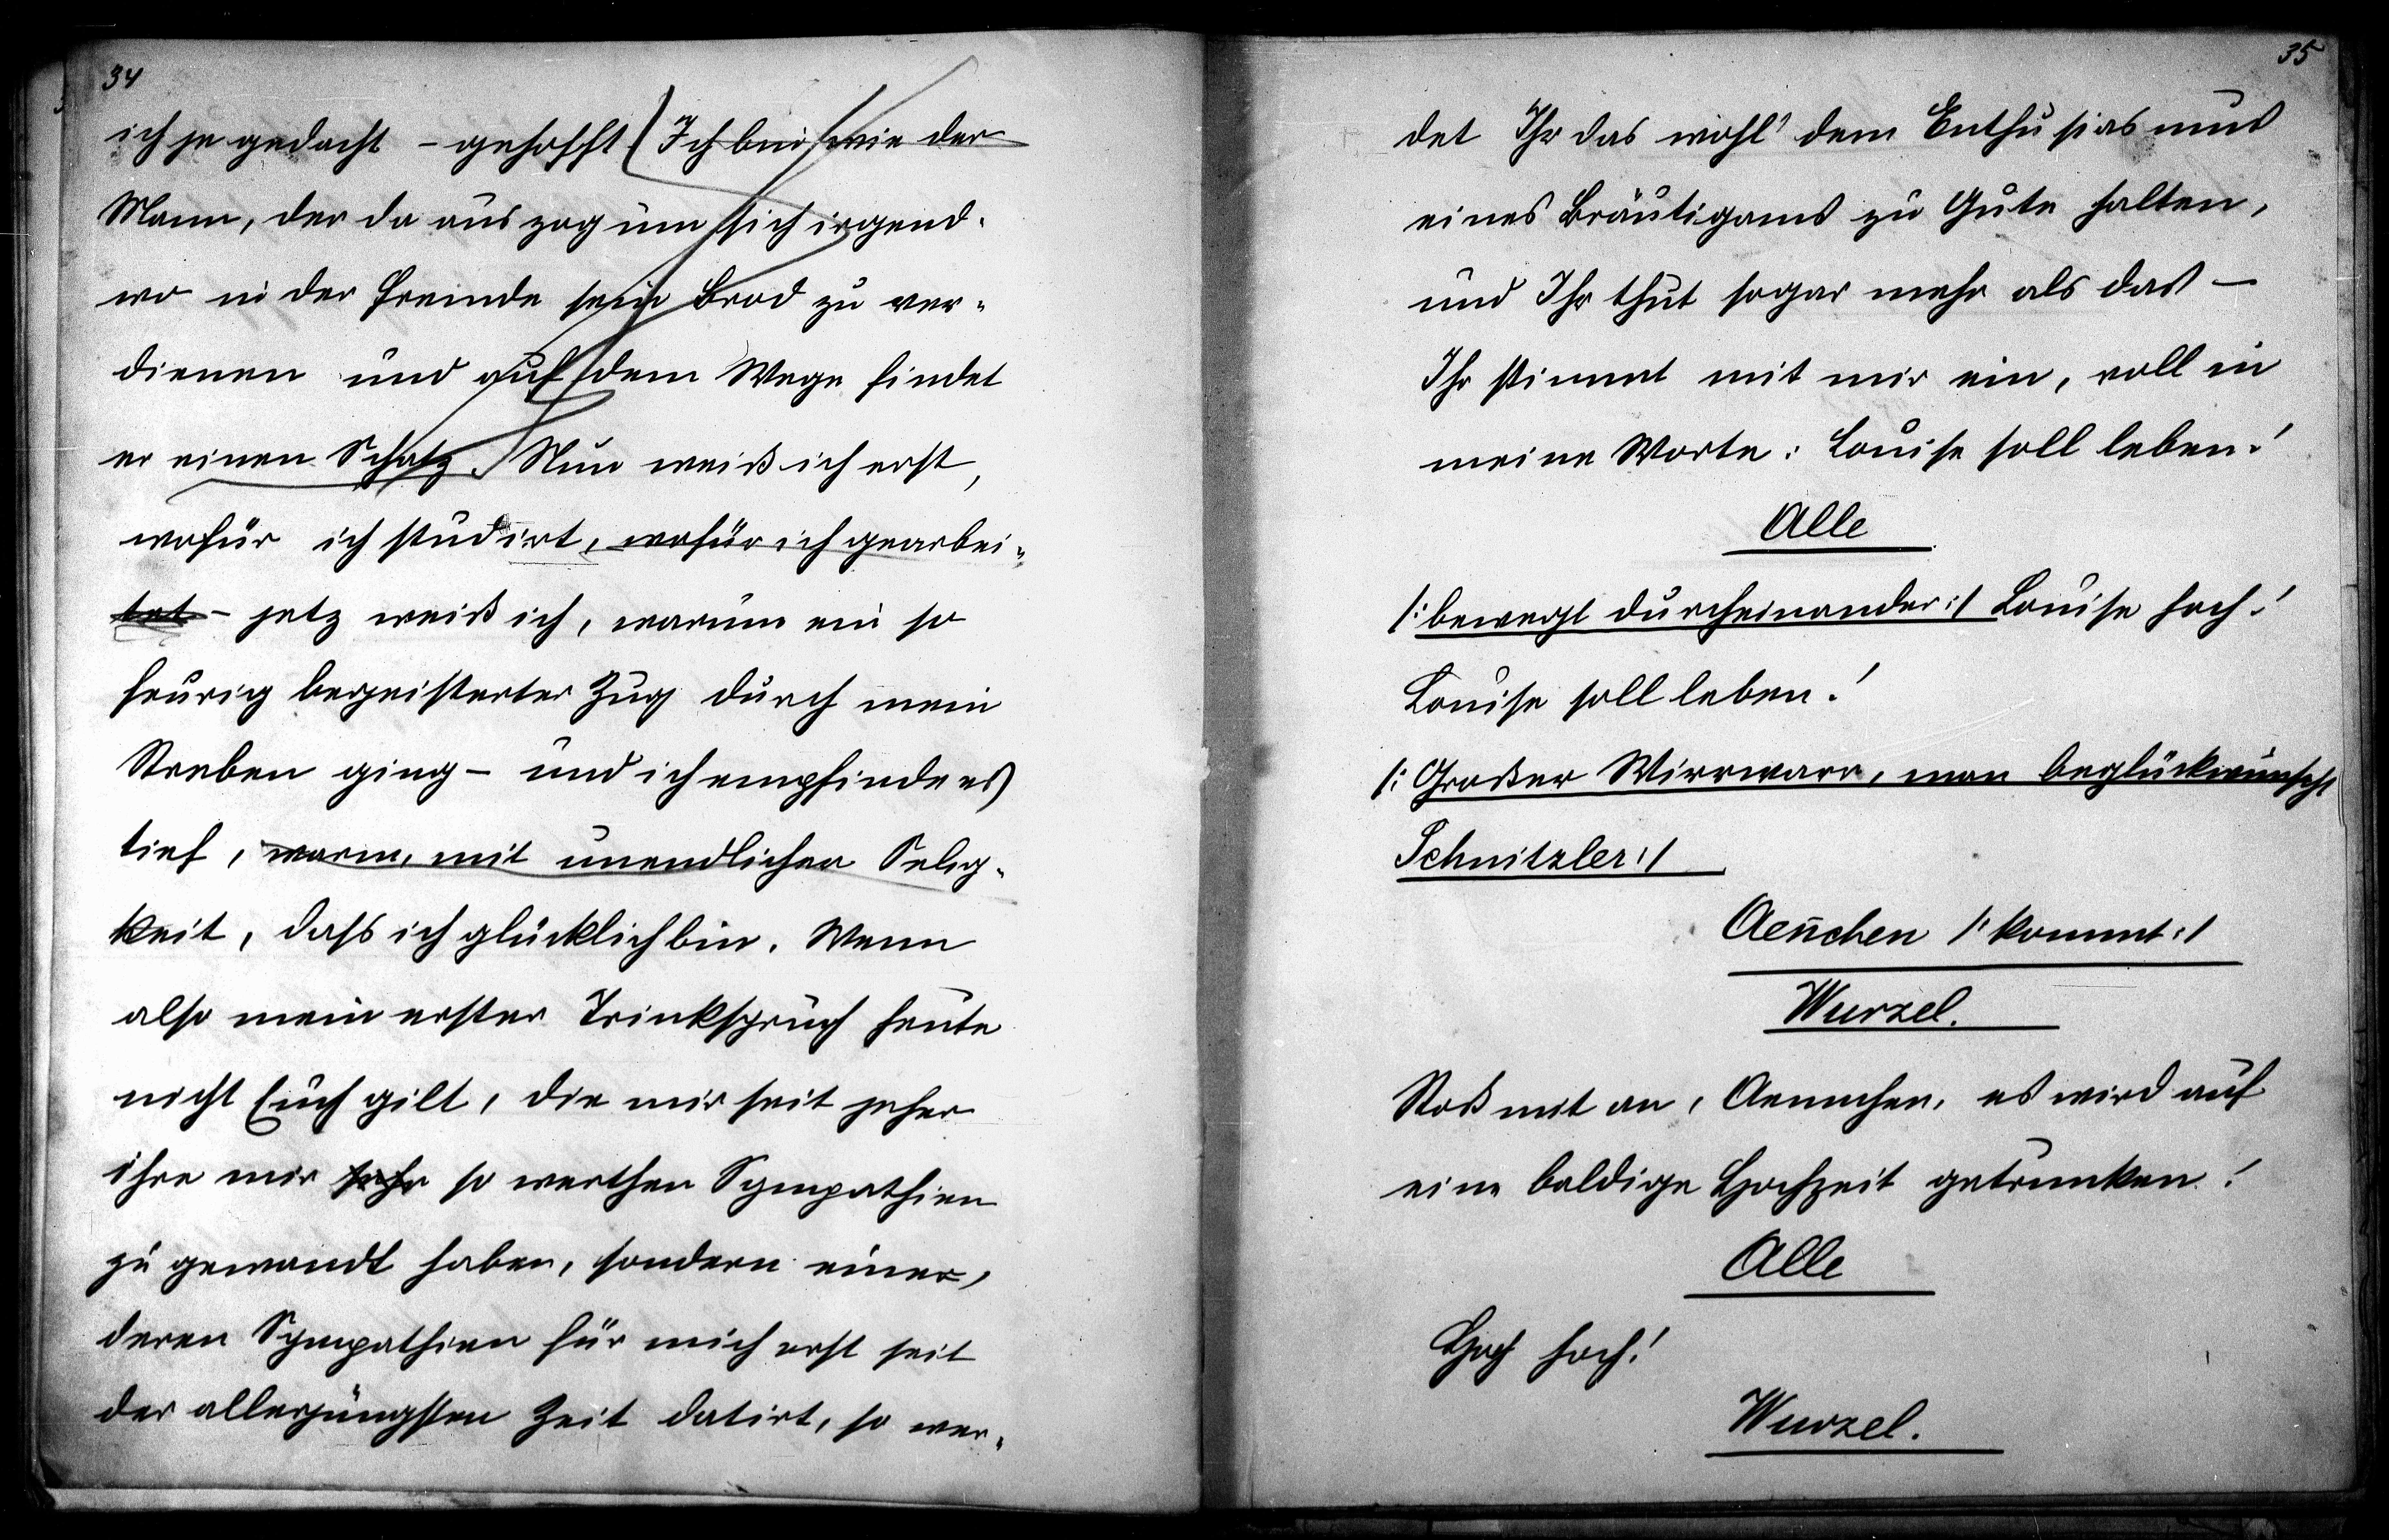 34
ich je gedacht – gehofft (Ich bin wie der
Mann, der da auszog um sich irgend-
wo in der Fremde sein Brod zu ver-
dienen und auf dem Wege findet
er einen Schatz. Nun weiß ich erst,
wofür ich studirt, wofür ich gearbei-
tet – jetz weiß ich, warum ein so
feurig begeisterter Zug durch mein
Streben ging – und ich empfinde es
tief, warm, mit unendlicher Selig-
keit, dass ich glücklich bin. Wenn
also mein erster Trinkspruch heute
nicht Euch gilt, die mir seit jeher
ihre mir sehr so werthen Sympathien
zu gewandt haben, sondern einer,
deren Sympathien für mich erst seit
der allerjüngsten Zeit datirt, so wer-
35
det Ihr das wohl dem Enthusiasmus
eines Bräutigams zu Gute halten,
und Ihr thut sogar mehr als das –
Ihr stimmt mit mir ein, voll in
meine Worte: Louise soll leben!
Alle
/: bewegt durcheinander :/ Louise hoch!
Louise soll leben!
/: Großer Wirrwarr, man beglückwünscht
Schnitzler :/
Aen̄chen /: kommt :/
Wurzel.
Stoß mit an, Aennchen, es wird auf
eine baldige Hochzeit getrunken!
Alle
Hoch hoch!
Wurzel.